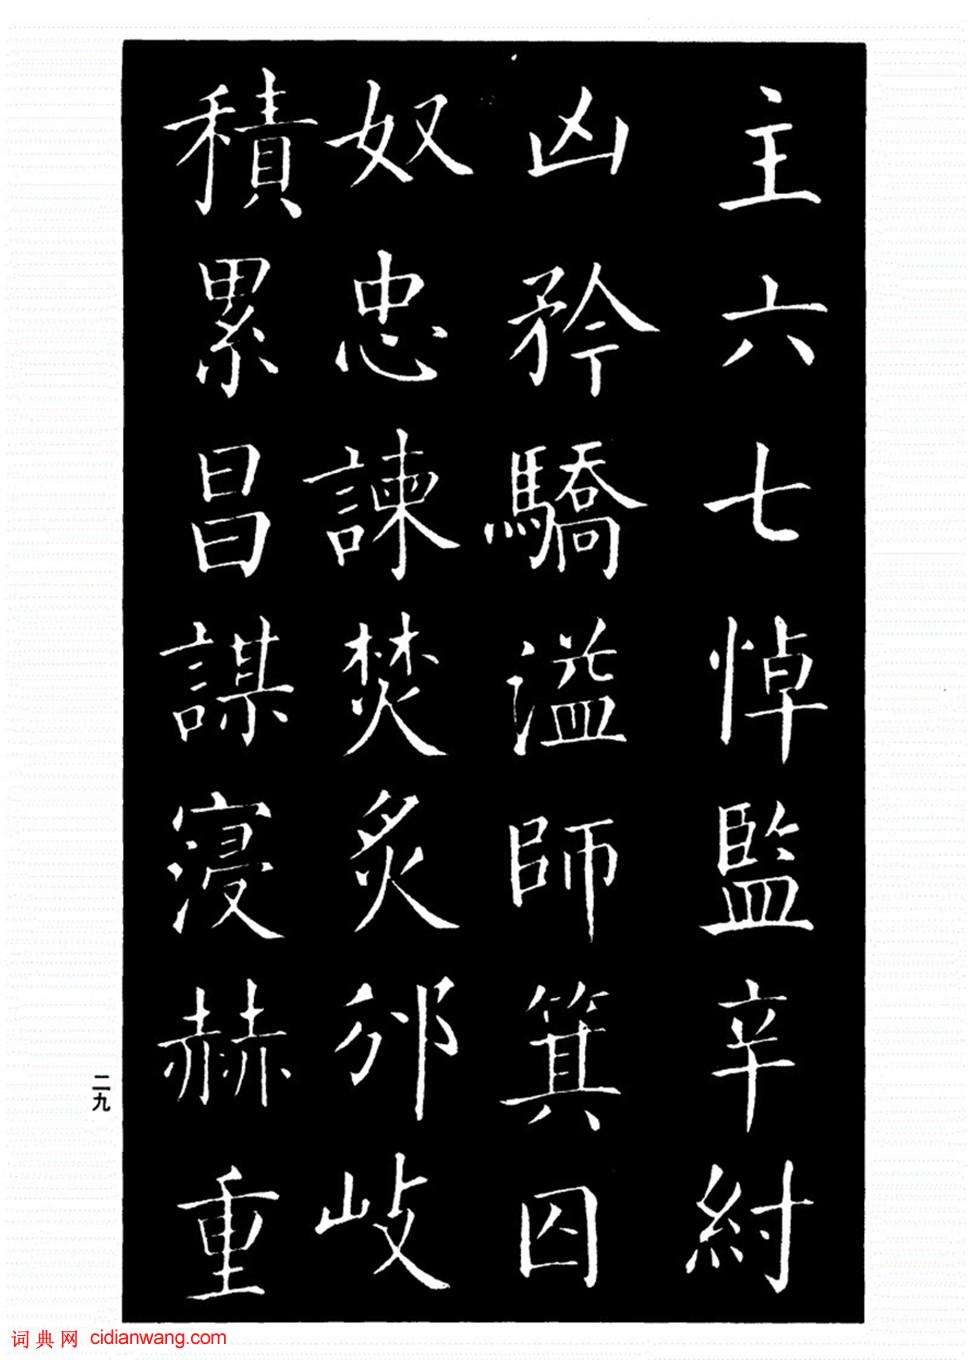 主六七悼監辛紂
凶矜驕謚師箕囚
奴忠諫焚炙邠岐
積累昌謀寖赫重
二九
词典网 cidianwang.com